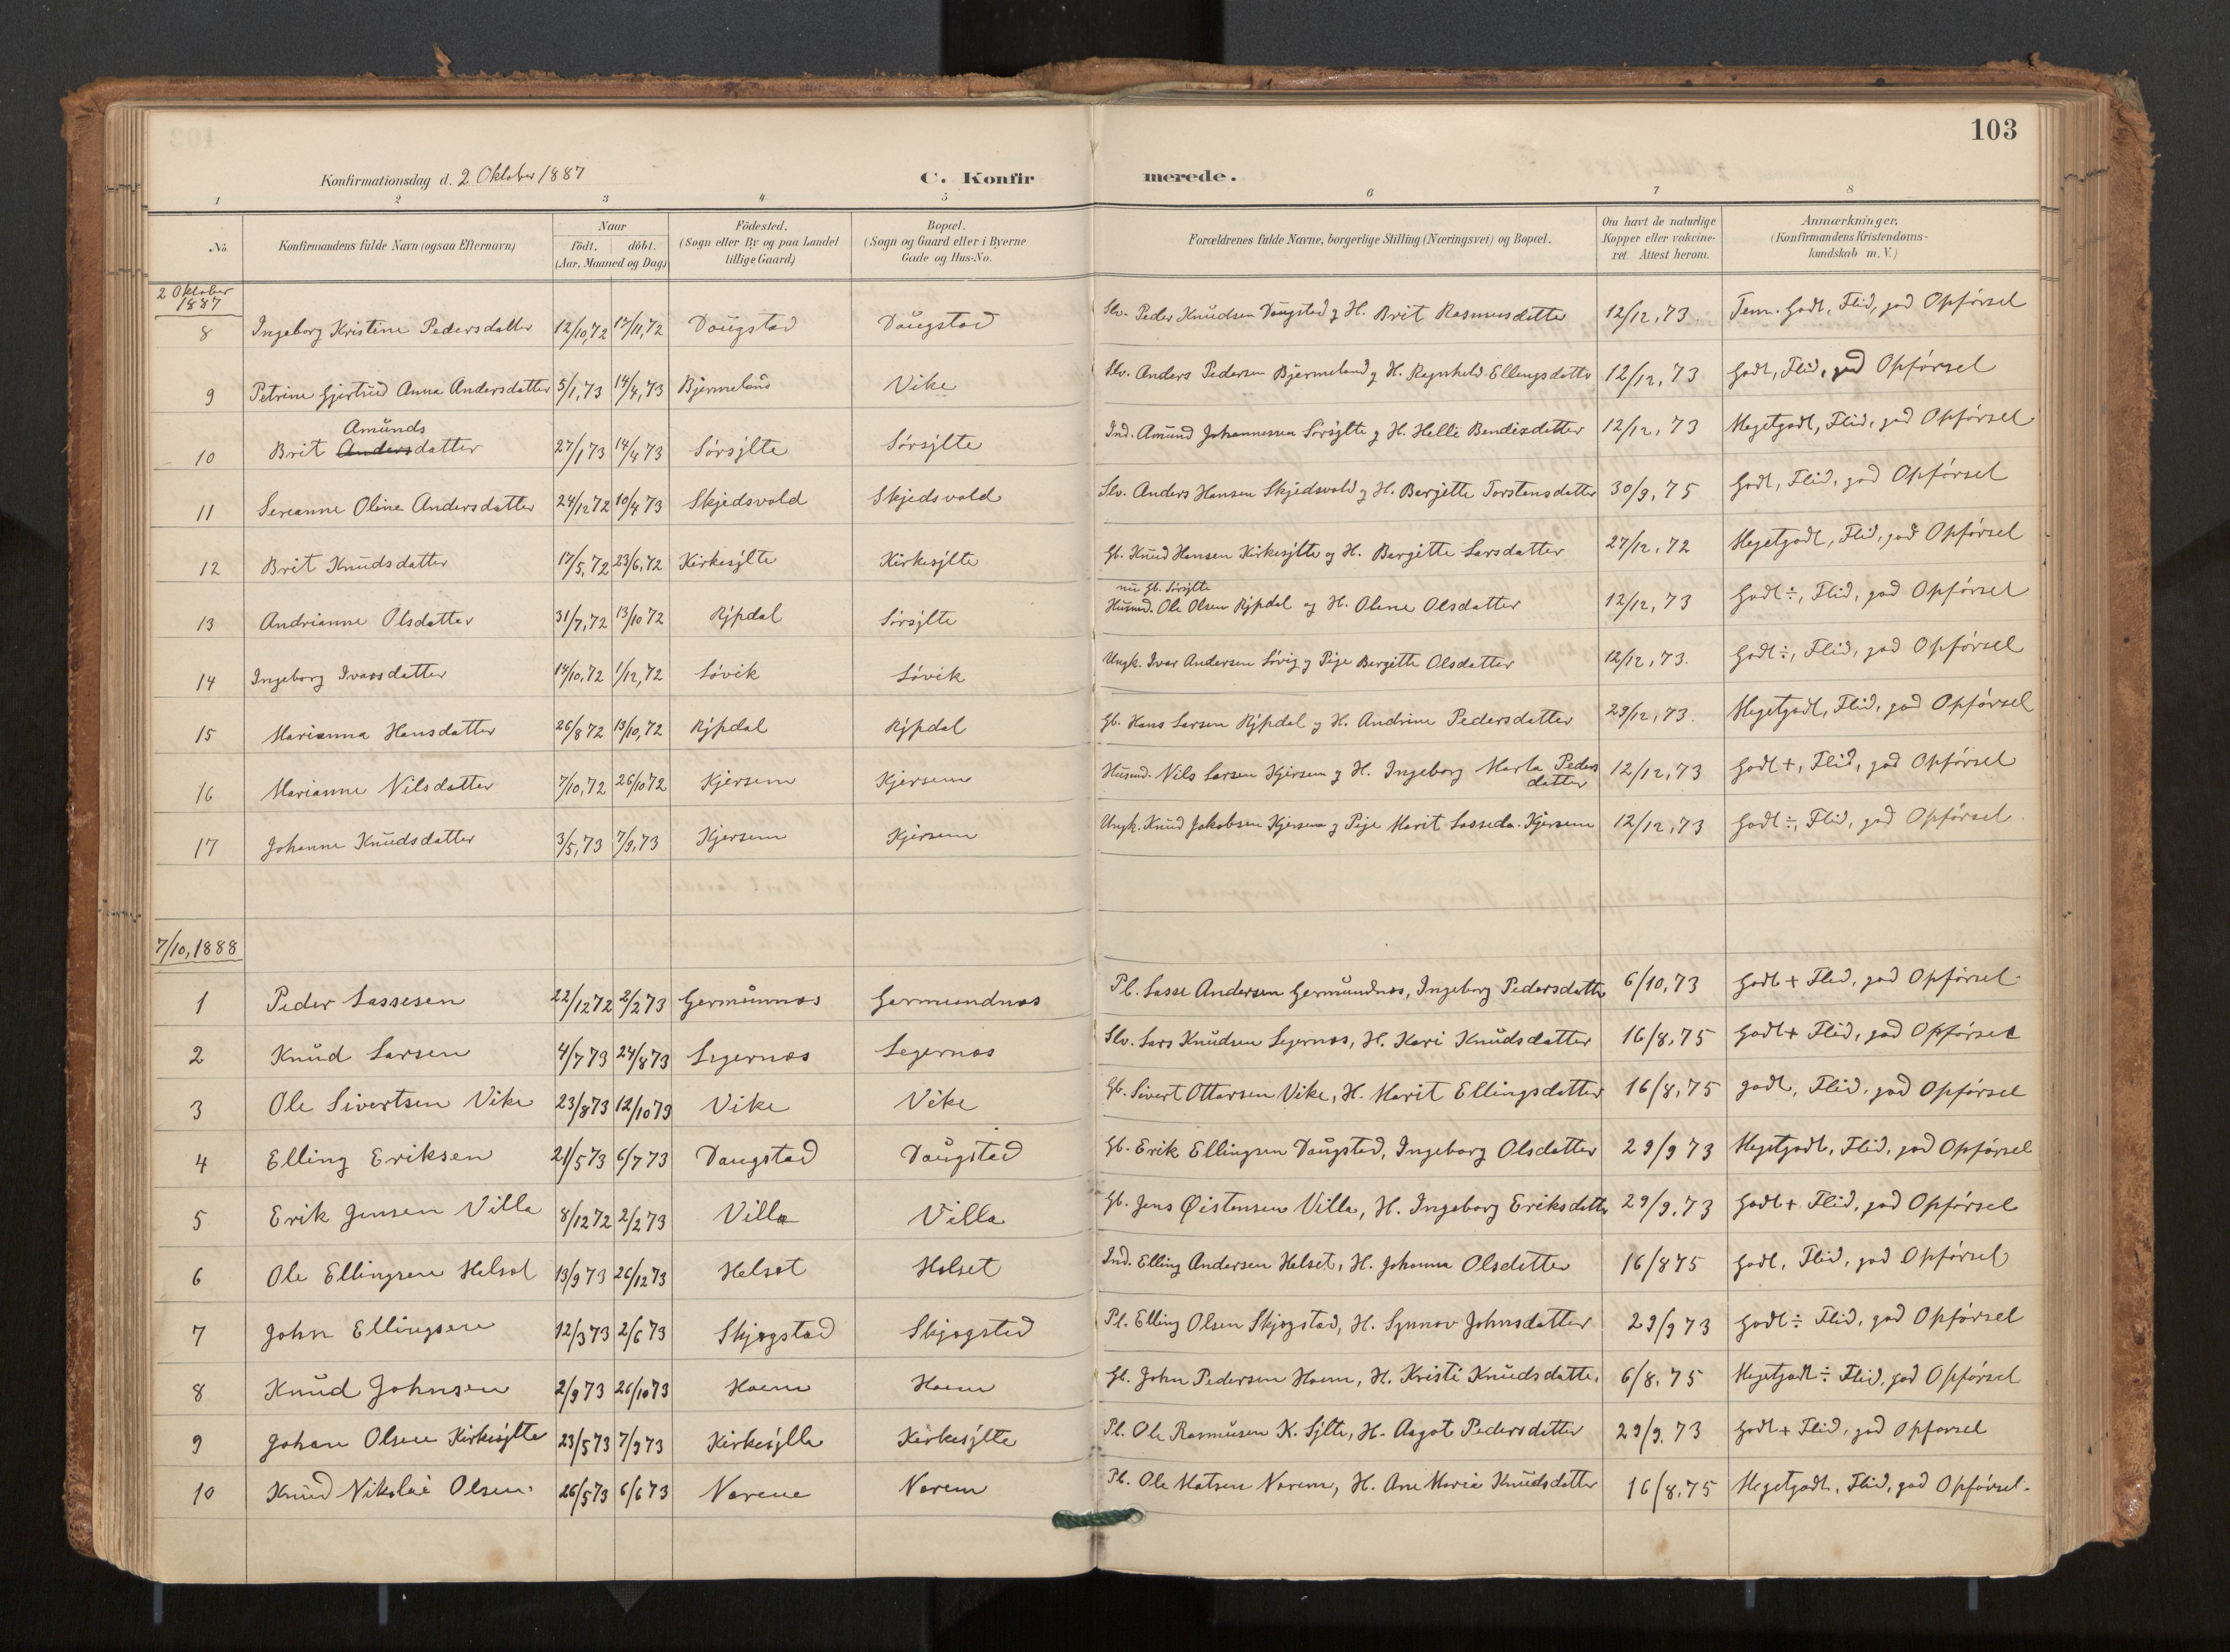 103
Konfirmationsdag d. 2 Oktober 1887
C. Konfirmerede.
1 2 3 4 5 6 7 8
No. | Konfirmandens fulde Navn (ogsaa Efternavn) | Naar födt. | döbt. (Aar, Maaned og Dag) | Födested. (Sogn eller By og paa Landet tillige Gaard) | Bopæl. (Sogn og Gaard eller i Byerne Gade og Hus-No. | Forældrenes fulde Navne, borgerlige Stilling (Næringsvei) og Bopæl. | Om havt de naturlige Kopper eller vakcineret. Attest herom. | Anmærkninger. (Konfirmandens Kristendomskundskab m. V.)
2 Oktober 1887
8 Ingeborg Kristine Pedersdatter 12/10,72 17/11,72 Daugstad Daugstad Slv. Peder Knudsen Daugstad og H. Brit Rasmusdatter 12/12,73 Tem. Godt, Flid, god Opförsel
9 Petrine Gjertrud Anna Andersdatter 5/1,73 14/4,73 Bjermeland Vike Slv. Anders Pedersen Bjermeland og H. Ragnhild Ellingsdatter 12/12,73 Godt, Flid, god Opförsel
Amunds
10 Brit Andersdatter 27/1 73 14/4 73 Sörsylte Sörsylte Ind. Amund Johannessen Sörsylte og H. Helli Bendixdatter 12/12,73 Megetgodt, Flid, god Opförsel
11 Serianne Oline Andersdatter 24/12 72 10/4 73 Skjedsvold Skjedsvold Slv. Anders Hansen Skjedsvold og H. Bergitte Torstensdatter 30/9,75 Godt, Flid, god Opförsel
12 Brit Knudsdatter 17/5,72 23/6,72 Kirkesylte Kirkesylte Gb. Knud Hansen Kirkesylte og H. Bergitte Larsdatter 27/12,72 Megetgodt, Flid, god Opförsel
nu Gb. Sörsylte
13 Andrianne Olsdatter 31/7,72 13/10 72 Rypdal Sörsylte Husmd. Ole Olsen Rypdal og H. Olene Olsdatter 12/12,73 Godt ÷, Flid, god Opförsel
14 Ingeborg Ivarsdatter 14/10,72 1/12,72 Sövik Sövik Ungk. Ivar Andersen Sövig og Pige Bergitte Olsdatter 12/12,73. Godt ÷, Flid, god Opförsel
15 Marianna Hansdatter 26/8 72 13/10,72 Rypdal Rypdal Gb. Hans Larsen Rypdal og H. Andrine Pedersdatter 29/12,73. Megetgodt, Flid, god Opförsel
16 Marianne Nilsdatter 7/10,72 26/10 72 Kjersem Kjersem Husmd. Nils Larsen Kjersem og H. Ingeborg Marta Peders
datter 12/12,73 Godt +, Flid, god Opförsel
17 Johanne Knudsdatter 3/5,73 7/9,73 Kjersem Kjersem Ungk. Knud Jakobsen Kjersem og Pige Marit Lasseda. Kjersem 12/12,73 Godt ÷, Flid, god Opförsel.
7/10,1888
1 Peder Lassesen 22/12 72 2/2 73 Germunnæs Germundnæs Pl. Lasse Andersen Germundnæs, Ingeborg Pedersdatter 6/10,73 Godt + Flid, god Opförsel.
2 Knud Larsen 4/7 73 24/8 73 Legernæs Legernæs Slv. Lars Knudsen Legernæs, H. Kari Knudsdatter 16/8,75 Godt + Flid, god Opförsel
3 Ole Sivertsen Vike 23/8 73 12/10 73 Vike Vike Gb. Sivert Ottarsen Vike, H. Marit Ellingsdatter 16/8,75 godt, Flid, god Opförsel
4 Elling Eriksen 21/5 73 6/7 73 Daugstad Daugstad Gb. Erik Ellingsen Daugstad, Ingeborg Olsdatter 29/9 73 Megetgodt, Flid, god Opförsel
5 Erik Jensen Villa 8/12 72 2/2 73 Villa Villa Gb. Jens Øistensen Villa, H. Ingeborg Eriksdatter 29/9,73 Godt + Flid, god Opförsel
6 Ole Ellingsen Helset 13/9 73 26/12 73 Helset Helset Ind. Elling Andersen Helset, H. Johanna Olsdatter 16/8 75 Godt, Flid, god Opförsel
7 John Ellingsen 12/3 73 2/6 73 Skjegstad Skjegstad Pl. Elling Olsen Skjegstad, H. Synnøv Johnsdatter 29/9 73 Godt ÷ Flid, god Opförsel
8 Knud Johnsen 2/9 73 26/10 73 Hoem Hoem Gb. John Pedersen Hoem, H. Kristi Knudsdatter 6/8,75 Megetgodt ÷ Flid, god Opförsel
9 Johan Olsen Kirkesylte 23/5 73 7/9 73 Kirkesylte Kirkesylte Pl. Ole Rasmusen K. Sylte, H. Aagot Pedersdatter 29/9.73 Godt + Flid, god Opförsel
10 Knud Nikolai Olsen. 26/5 73 6/6 73 Narem Narem Pl. Ole Matsen Narem, H. Ane Maria Knudsdatter 16/8,75 Megetgodt, Flid, god Opförsel.